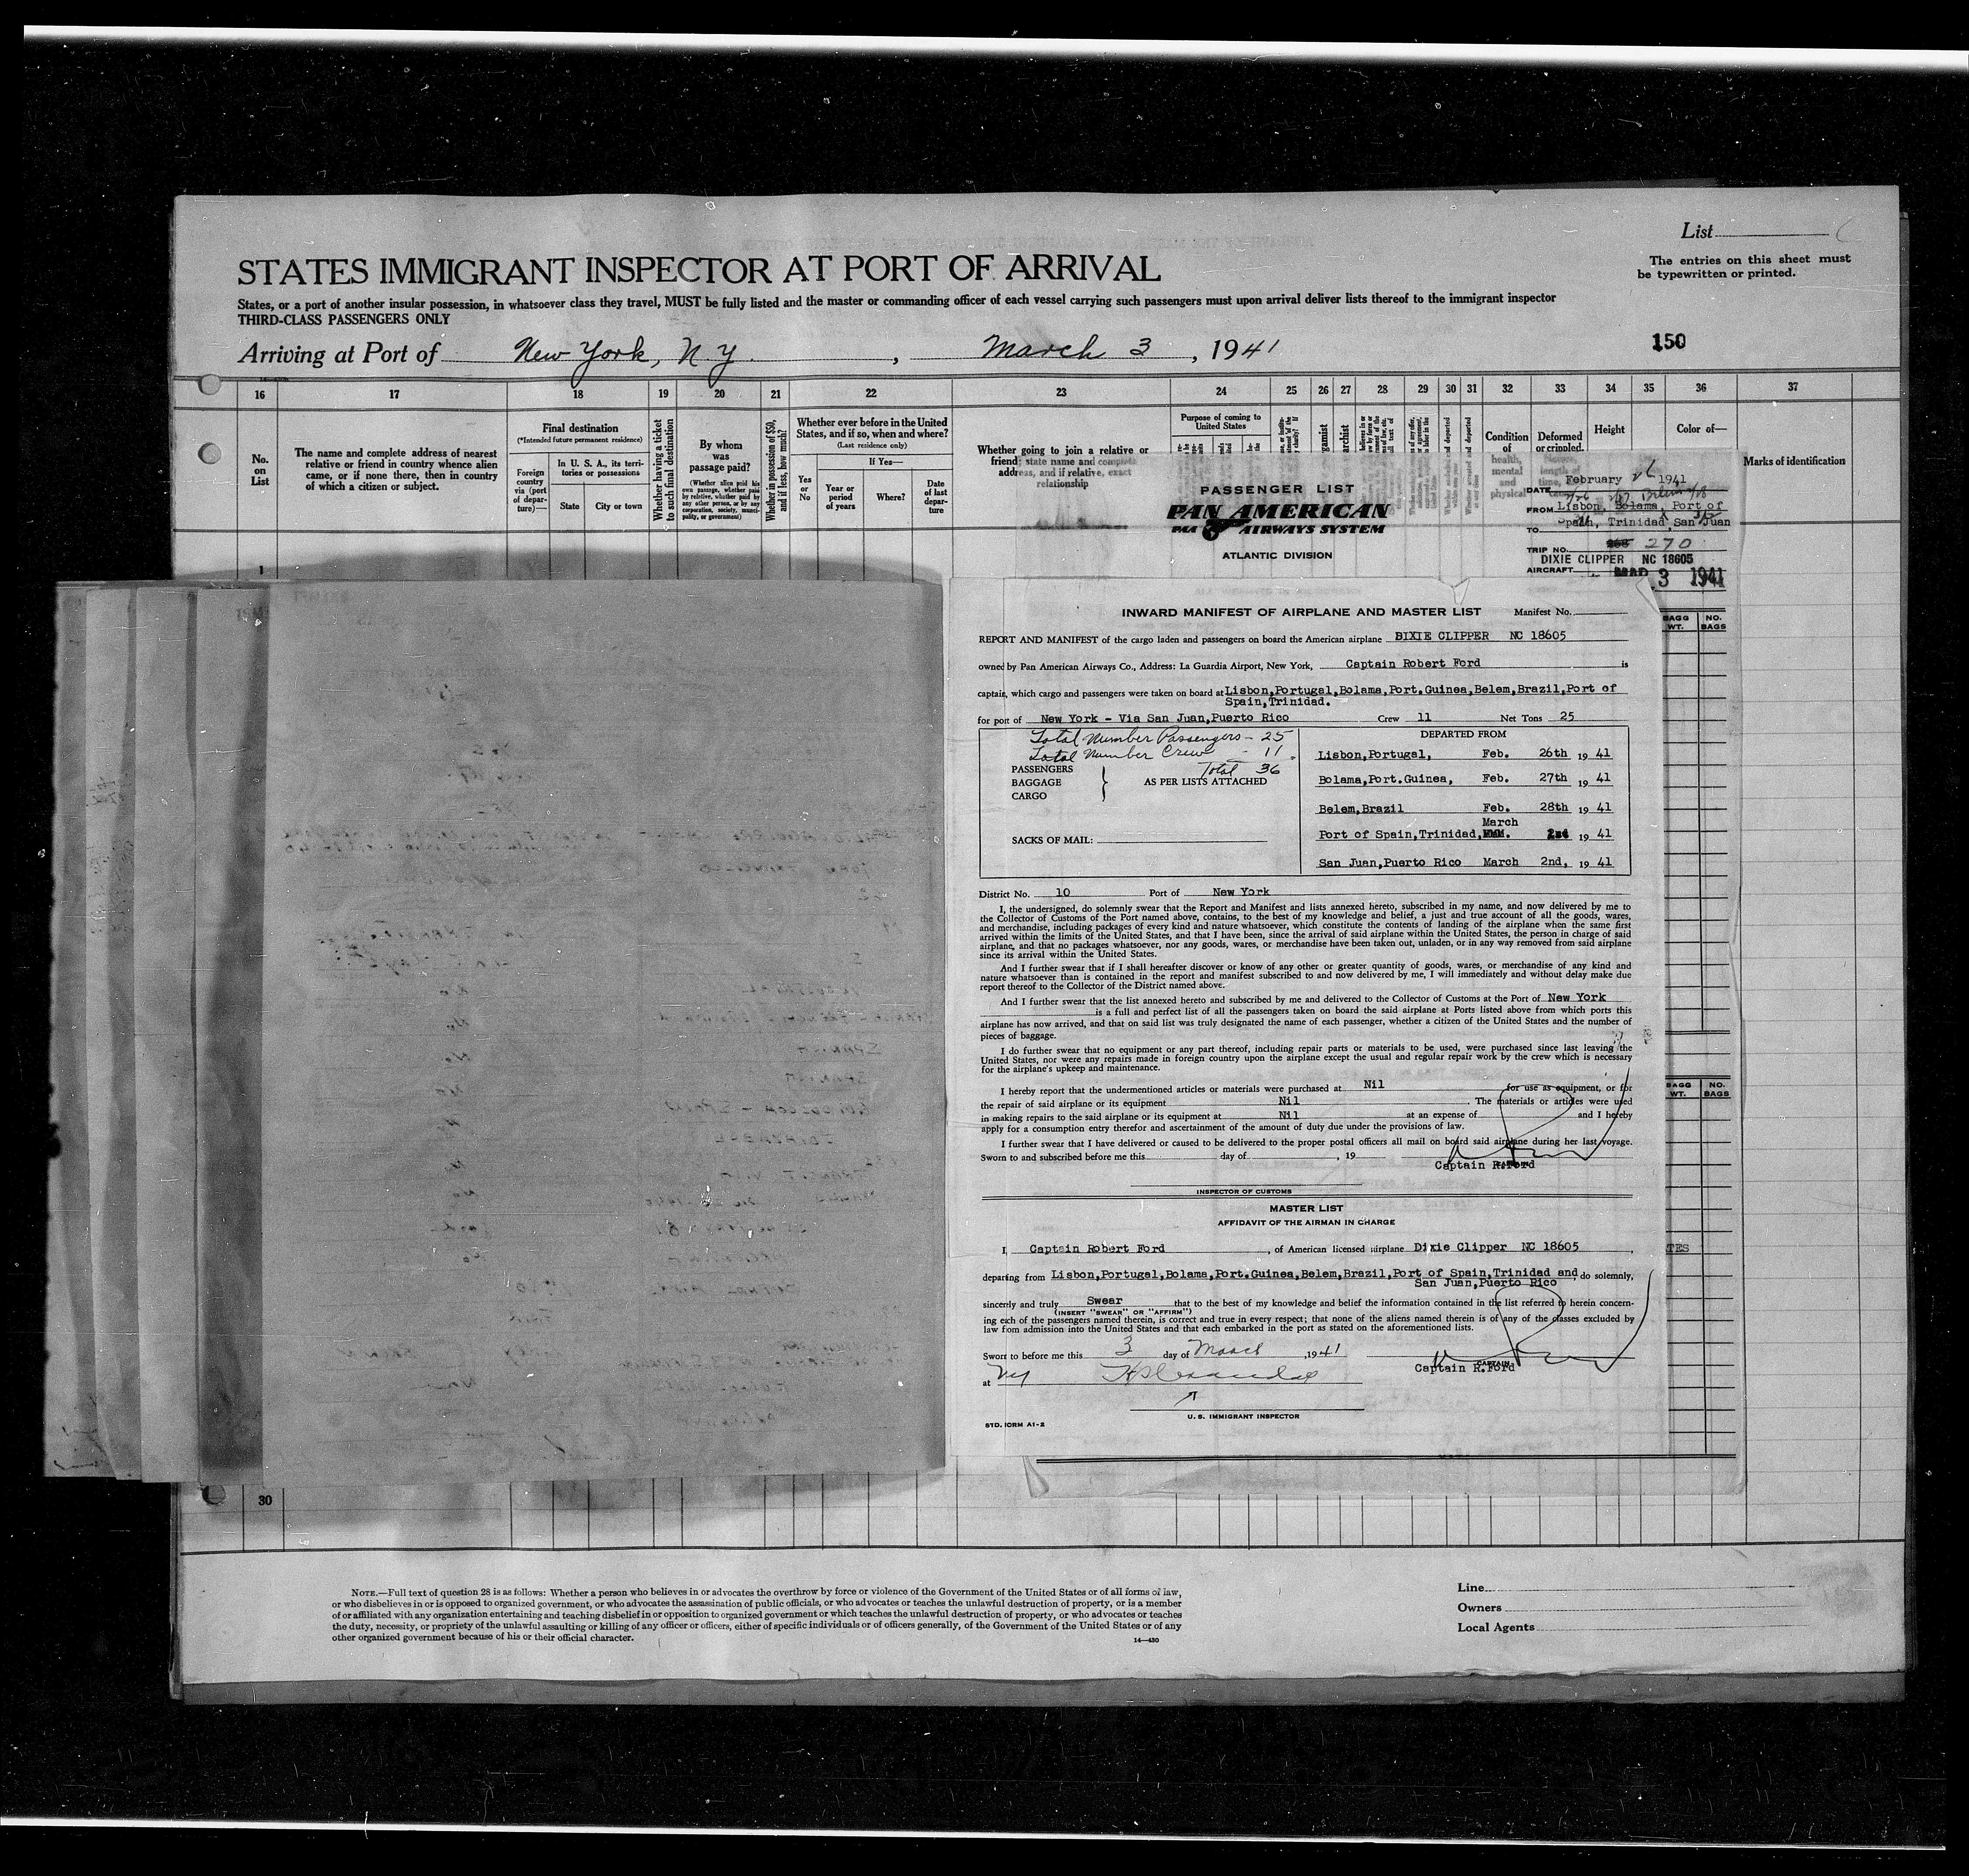 List
STATES IMMIGRANT INSPECTOR AT PORT OF ARRIVAL
The entries on this sheet must
be typewritten or printed.
States, or a port of another insular possession, in whatsoever class they travel, MUST be fully listed and the master or commanding officer of each vessel carrying such passengers must upon arrival deliver lists thereof to the immigrant inspector
THIRD-CLASS PASSENGERS ONLY
150
Arriving at Port of New York, N.Y. , March 3 , 1941
16 17 18 19 20 21 22 23 24 25 26 27 28 29 30 31 32 33 34 35 36 37
No.
on
List
The name and complete address of nearest
relative or friend in country whence alien
came, or if none there, then in country
of which a citizen or subject.
Final destination
(*Intended future permanent residence)
Foreign
country
via (port
of depar-
ture)—
In U. S. A., its terri-
tories or possessions
State
City or town
Whether having a ticket
to such final destination
By whom
was
passage paid?
(Whether alien paid his
own passage, whether paid
by relative, whether paid by
any other person, or by any
corporation, society, munici-
pality, or government)
Whether in possession of $50,
and if less, how much?
Whether ever before in the United
States, and if so, when and where?
(Last residence only)
Yes
or
No
If Yes—
Year or
period
of years
Where?
Date
of last
depar-
ture
Whether going to join a relative or
friend; state name and complete
address, and if relative, exact
relationship
Purpose of coming to
United States
Condition
of
health,
mental
and
physical
Deformed
or crippled.
Height
Color of—
Marks of identification
PASSENGER LIST
PAN AMERICAN
PAA AIRWAYS SYSTEM
ATLANTIC DIVISION
DATE February 26 1941
FROM Lisbon, Bolama, Port of
Spain, Trinidad, San Juan
TO
TRIP NO. 270
DIXIE CLIPPER NC 18605
AIRCRAFT
MAR 3 1941
1
BAGG
WT.
NO.
BAGS
INWARD MANIFEST OF AIRPLANE AND MASTER LIST Manifest No.
REPORT AND MANIFEST of the cargo laden and passengers on board the American airplane BIXIE CLIPPER NC 18605
owned by Pan American Airways Co., Address: La Guardia Airport, New York, Captain Robert Ford is
captain, which cargo and passengers were taken on board at Lisbon,Portugal,Bolama,Port.Guinea,Belem,Brazil,Port of
Spain,Trinidad.
for port of New York - Via San Juan,Puerto Rico Crew 11 Net Tons 25
Total Number Passengers - 25
Total Number Crew - 11
Total 36
PASSENGERS
BAGGAGE
CARGO
AS PER LISTS ATTACHED
SACKS OF MAIL:
DEPARTED FROM
Lisbon,Portugal, Feb. 26th 19 41
Bolama,Port.Guinea, Feb. 27th 19 41
Belem,Brazil Feb. 28th 19 41
March
Port of Spain,Trinidad, 2nd 19 41
San Juan,Puerto Rico March 2nd, 19 41
District No. 10 Port of New York
I, the undersigned, do solemnly swear that the Report and Manifest and lists annexed hereto, subscribed in my name, and now delivered by me to
the Collector of Customs of the Port named above, contains, to the best of my knowledge and belief, a just and true account of all the goods, wares,
and merchandise, including packages of every kind and nature whatsoever, which constitute the contents of landing of the airplane when the same first
arrived within the limits of the United States, and that I have been, since the arrival of said airplane within the United States, the person in charge of said
airplane, and that no packages whatsoever, nor any goods, wares, or merchandise have been taken out, unladen, or in any way removed from said airplane
since its arrival within the United States.
And I further swear that if I shall hereafter discover or know of any other or greater quantity of goods, wares, or merchandise of any kind and
nature whatsoever than is contained in the report and manifest subscribed to and now delivered by me, I will immediately and without delay make due
report thereof to the Collector of the District named above.
And I further swear that the list annexed hereto and subscribed by me and delivered to the Collector of Customs at the Port of New York
is a full and perfect list of all the passengers taken on board the said airplane at Ports listed above from which ports this
airplane has now arrived, and that on said list was truly designated the name of each passenger, whether a citizen of the United States and the number of
pieces of baggage.
I do further swear that no equipment or any part thereof, including repair parts or materials to be used, were purchased since last leaving the
United States, nor were any repairs made in foreign country upon the airplane except the usual and regular repair work by the crew which is necessary
for the airplane's upkeep and maintenance.
I hereby report that the undermentioned articles or materials were purchased at Nil for use as equipment, or for
the repair of said airplane or its equipment Nil . The materials or articles were used
in making repairs to the said airplane or its equipment at Nil at an expense of and I hereby
apply for a consumption entry therefor and ascertainment of the amount of duty due under the provisions of law.
I further swear that I have delivered or caused to be delivered to the proper postal officers all mail on board said airplane during her last voyage.
Sworn to and subscribed before me this day of , 19
Captain R.Ford
INSPECTOR OF CUSTOMS
BAGG
WT.
NO.
BAGS
MASTER LIST
AFFIDAVIT OF THE AIRMAN IN CHARGE
I, Captain Robert Ford , of American licensed airplane Dixie Clipper NC 18605 ,
departing from Lisbon,Portugal,Bolama,Port.Guinea,Belem,Brazil,Port of Spain,Trinidad and do solemnly,
San Juan,Puerto Rico
sincerely and truly Swear that to the best of my knowledge and belief the information contained in the list referred to herein concern-
(INSERT "SWEAR" OR "AFFIRM")
ing each of the passengers named therein, is correct and true in every respect; that none of the aliens named therein is of any of the classes excluded by
law from admission into the United States and that each embarked in the port as stated on the aforementioned lists.
Sworn to before me this 3 day of March ,1941
CAPTAIN
Captain R.Ford
at NY
U. S. IMMIGRANT INSPECTOR
STD. FORM A1-2
TES
30
NOTE.—Full text of question 28 is as follows: Whether a person who believes in or advocates the overthrow by force or violence of the Government of the United States or of all forms of law,
or who disbelieves in or is opposed to organized government, or who advocates the assassination of public officials, or who advocates or teaches the unlawful destruction of property, or is a member
of or affiliated with any organization entertaining and teaching disbelief in or opposition to organized government or which teaches the unlawful destruction of property, or who advocates or teaches
the duty, necessity, or propriety of the unlawful assaulting or killing of any officer or officers, either of specific individuals or of officers generally, of the Government of the United States or of any
other organized government because of his or their official character.
14—430
Line
Owners
Local Agents